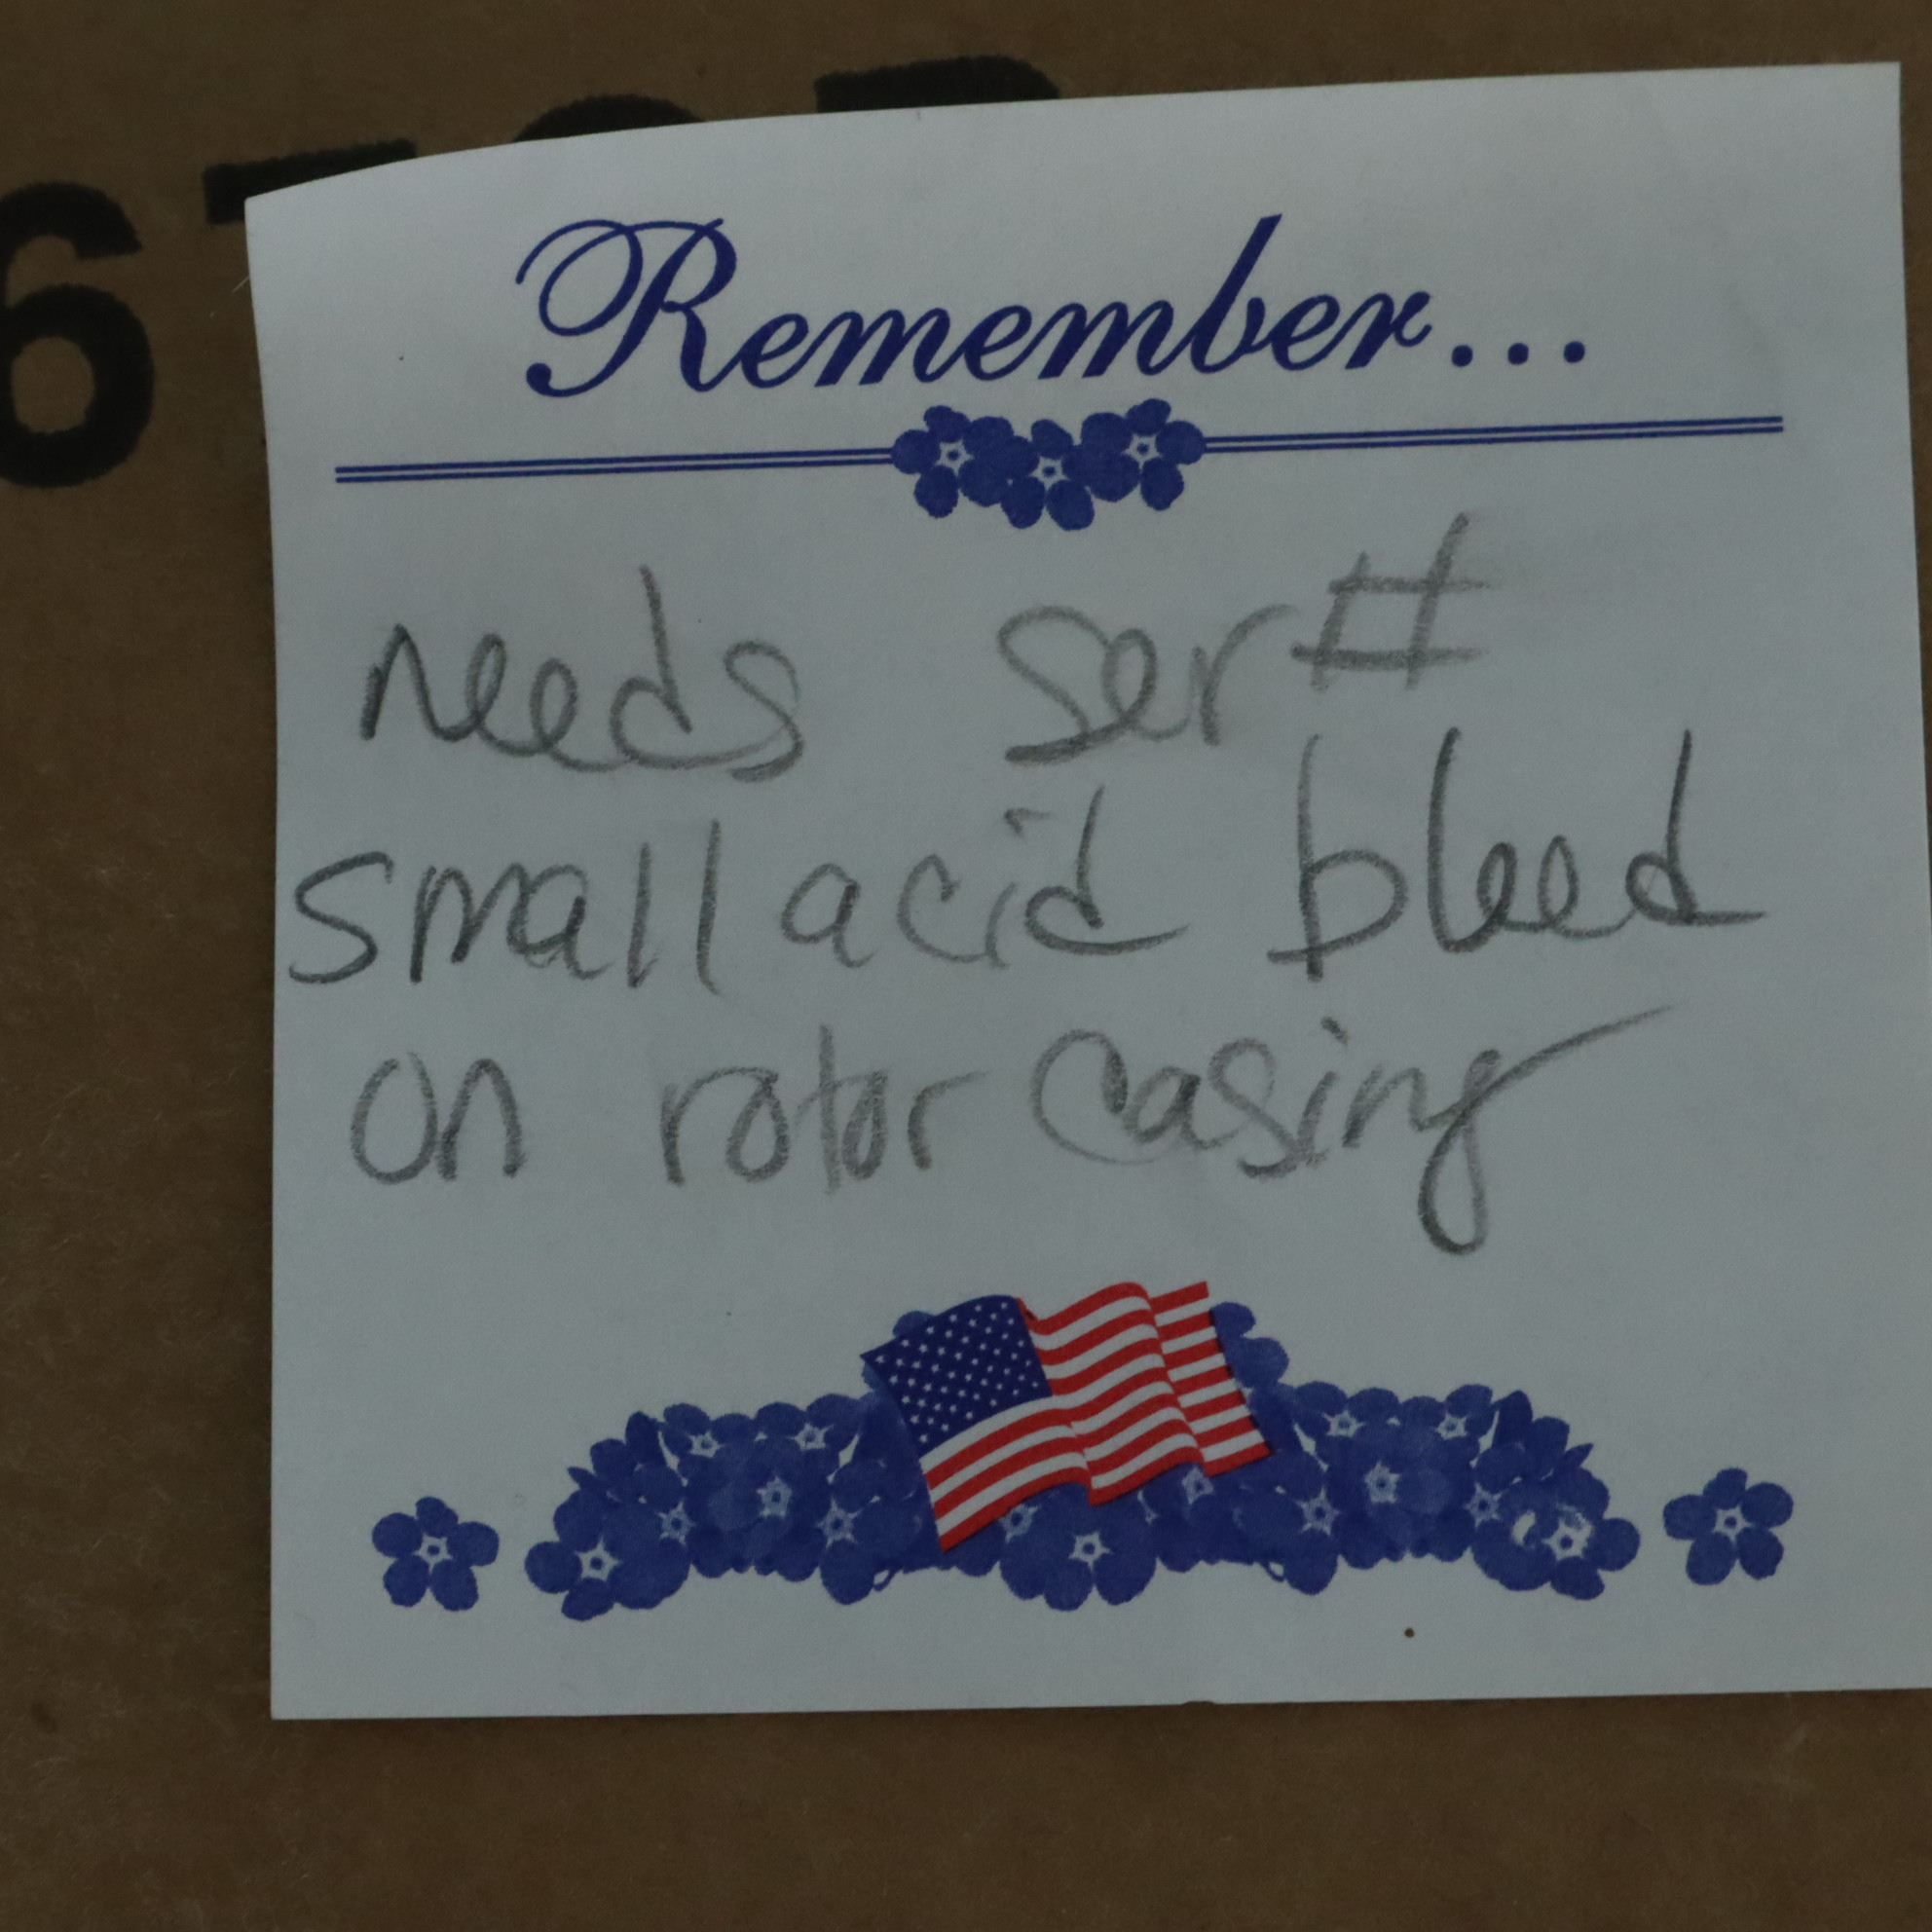 6
Remember...
needs ser#
small acid bleed
on rotor casing